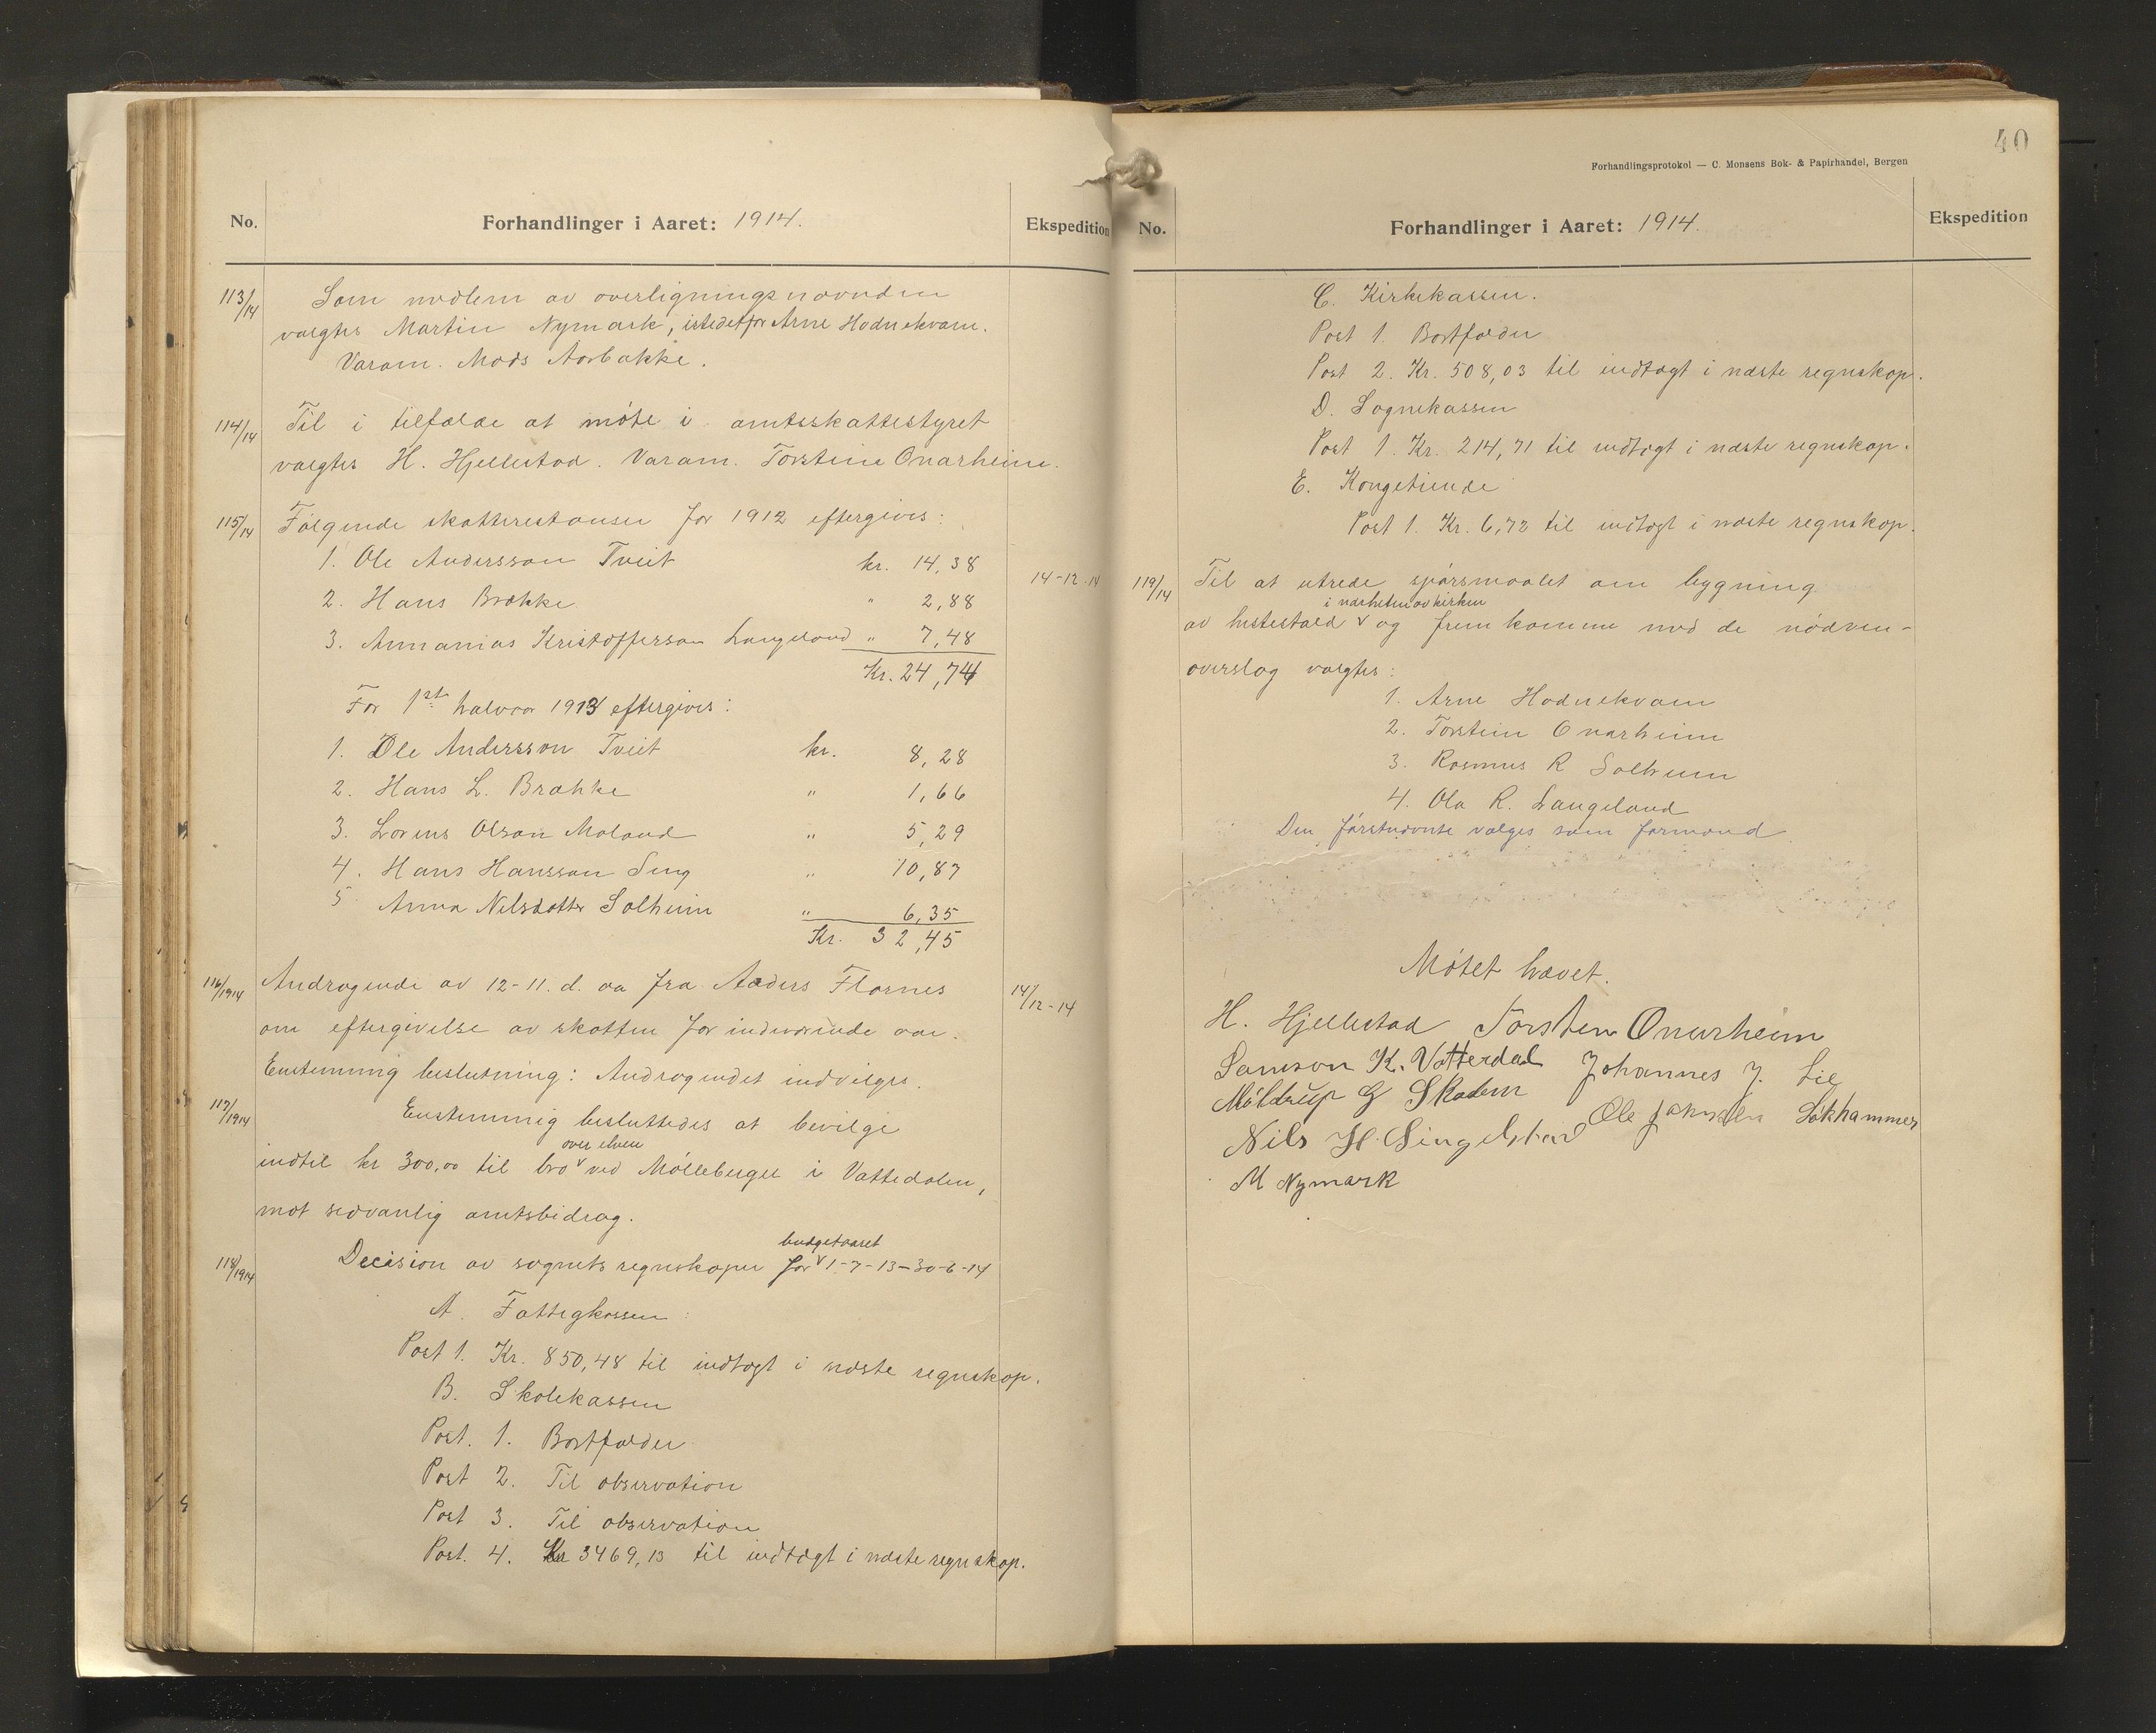 No.
Forhandlinger i Aaret: 1914.
Ekspedition
113/14 Som medlem av overligningsnævnden
valgtes Martin Nymark, istedetfor Arne Hodnekvam.
Varam. Mads Aarbakke.
114/14 Til i tilfælde at møte i amtsskattestyret
valgtes H. Hjellestad. Varam. Torstein Onarheim.
115/14 Følgende skatterestanser for 1912 eftergives:
1. Ole Andersson Tveit kr. 14,38
14-12-14
2. Hans Brække " 2,88
3. Annanias Kristofferson Langeland " 7,48
Kr. 24,74
For 1st halvaar 1913 eftergives:
1. Ole Andersson Tveit kr. 8,28
2. Hans L. Brække " 1,66
3. Lorens Olson Moland " 5,29
4. Hans Hansson Seng " 10,87
5 Anna Nilsdatter Solheim " 6,35
Kr. 32,45
116/1914 Andragende av 12-11. d. aa fra Anders Flornes
14/12-14
om eftergivelse av skatten for indeværende aar.
Enstemmig beslutning: Andragendet indvilges.
117/1914 Enstemmig besluttedes at bevilge
over elven
indtil kr 300,00 til bro v ved Mølleberget i Vattedalen,
mot sedvanlig amtsbidrag.
budgetaaret
118/1914 Decision av sognets regnskaper for v 1-7-13-30-6-14
A. Fattigkassen:
Post 1. Kr. 850,48 til indtægt i næste regnskap.
B. Skolekassen
Post. 1. Bortfalder
Post 2. Til observation
Post 3. Til observation
Post. 4. Kr 3469,13 til indtægt i næste regnskap.
40
Forhandlingsprotokol — C. Monsens Bok- & Papirhandel, Bergen
No.
Forhandlinger i Aaret: 1914.
Ekspedition
C. Kirkekassen.
Post 1. Bortfalder
Post 2. Kr. 508,03 til indtægt i næste regnskap.
D. Sognekassen
Post 1. Kr. 214,71 til indtægt i næste regnskap.
E. Kongetiende
Post 1. Kr. 6,72 til indtægt i næste regnskap.
119/14 Til at utrede spørsmaalet om bygning
i nærheten av kirken
av hestestald v og fremkomme med de nødven-
overslag valgtes:
1. Arne Hodnekvam
2. Torstein Onarheim
3. Rasmus R Solheim
4. Ola R. Langeland
Den førstnævnte vælges som formand.
Møtet hævet.
H. Hjellestad Torstein Onarheim
Samson K. Vatterdal Johannes J. Lie
Møldrup G Skadem Ole Johnsen Løkhammer
Nils H. Singelstad
M Nymark